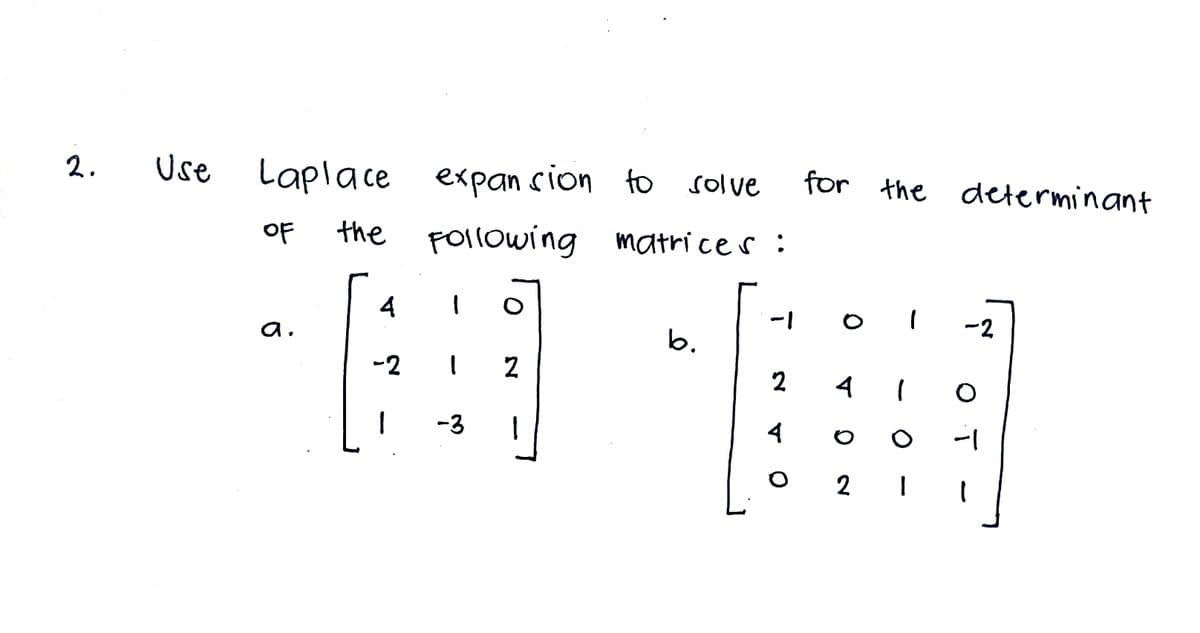 2. Use Laplace expansion to solve for the determinant
OF the Following matrices :
a.
4 1 0
-2 1 2
1 -3 1
b.
-1 0 1 -2
2 4 1 0
4 0 0 -1
0 2 1 1